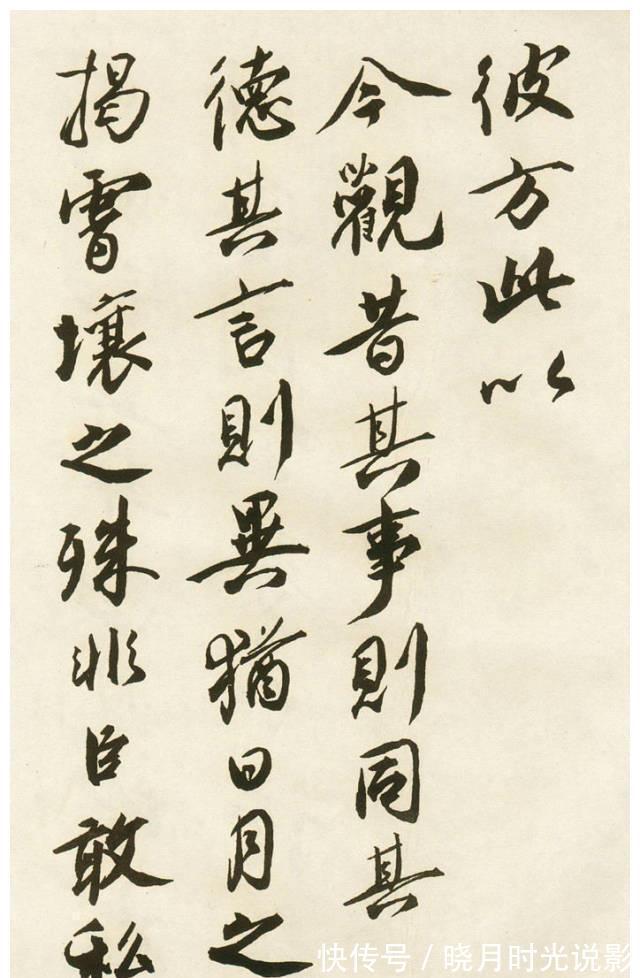 彼方此以
今觀昔其事則同其
德其言則異猶日月之
揭霄壤之殊非臣敢私
快传号/晓月时光说影